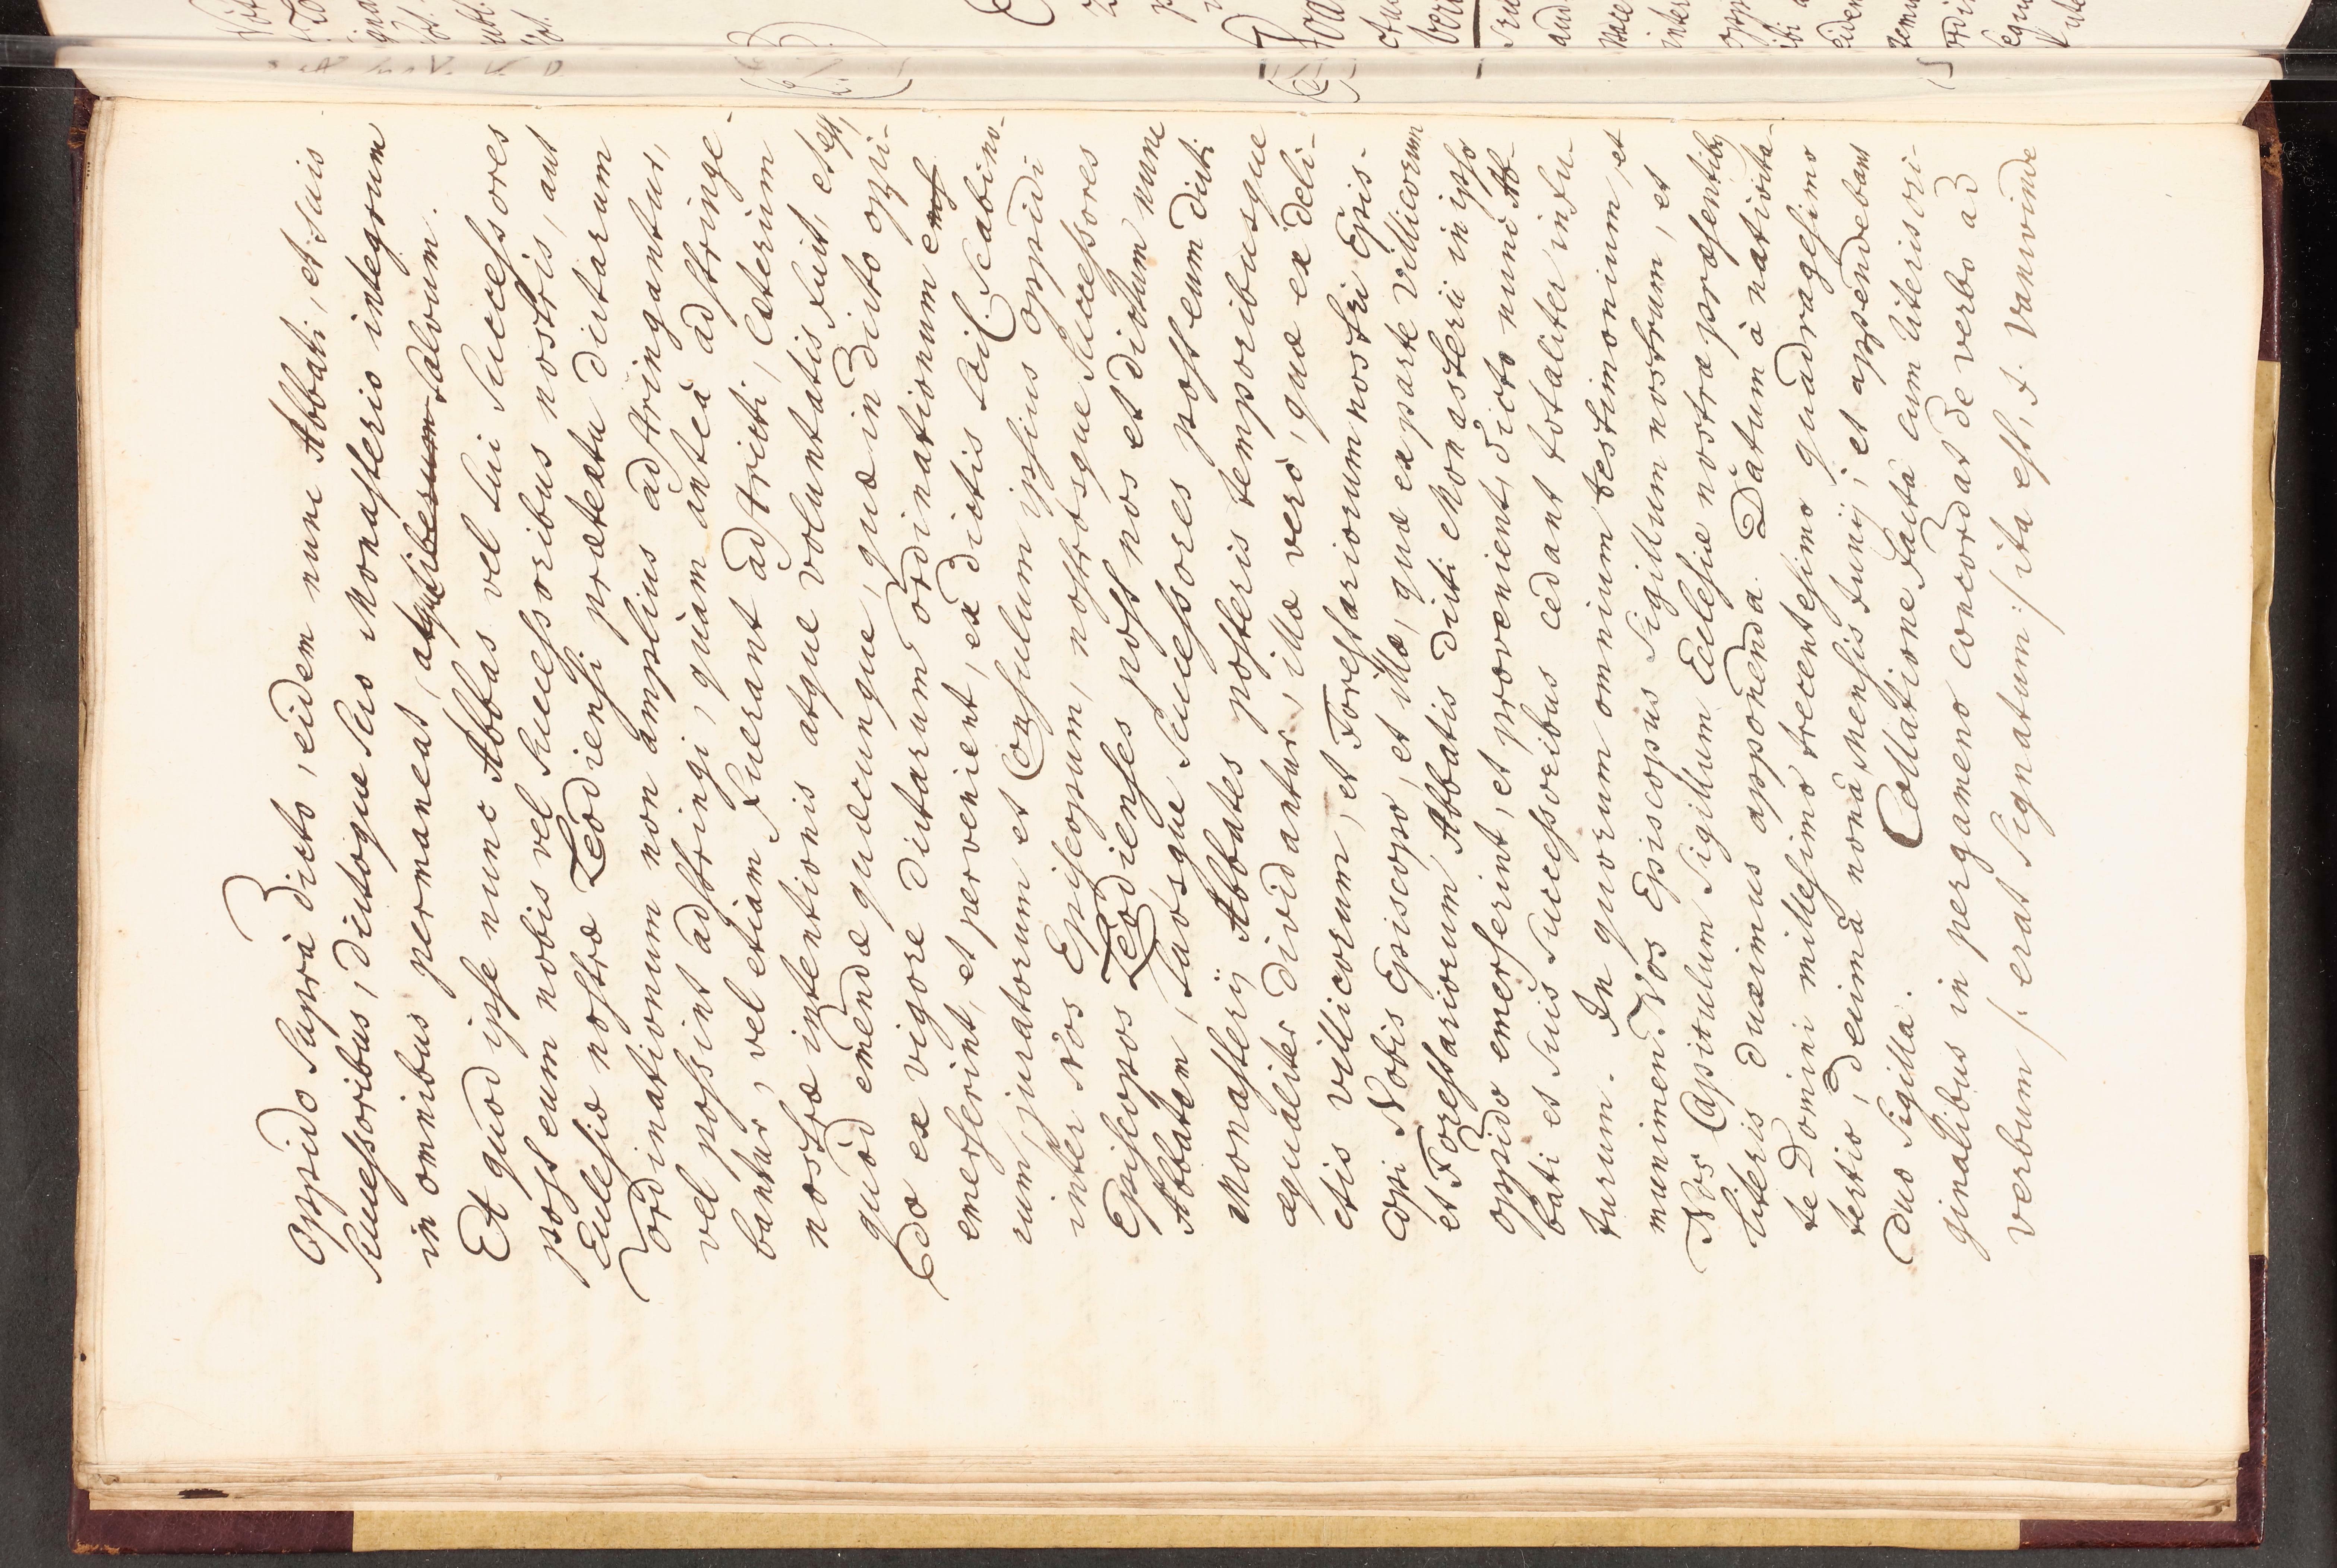 oppido suprà dicto, eidem nunc Abbati, et suis
successoribus, dictoque suo Monasterio integrum
in omnibus permaneat, atque liberum salvum.
Et quod ipse nunc Abbas vel sui successores
post eum nobis vel successoribus nostris, aut
Ecclesiæ nostræ Leodiensi prætextu dictarum
ordinationum non amplius adstringantur,
vel possint adstringi, quàm anteà adstringe-
bantur, vel etiam fuerant adstricti, cæterùm
nostræ intentionis atque voluntatis fuit, et est,
quòd emendæ quæcunque, quæ in dicto oppi-
do ex vigore dictarum ordinationum emers
emerserint, et pervenient, ex dictis scil. Scabino-
rum juratorum et Consulum ipsius oppidi
inter nos Episcopum, nostrosque successores
Episcopos Leodienses post nos et dictum nunc
Abbatem, suosque successores post eum dicti
Monasterij Abbates posteris temporibusque
æqualiter dividantur, illæ verò, quæ ex deli-
ctis villicorum, et Forestariorum nostri Epis-
copi Nobis Episcopo, et illæ, quæ ex parte villicorum
et Forestariorum Abbatis dicti Monasterii in ipso
oppido emerserint, et provenient, dicto nunc Ab-
bati et suis successoribus cedant totaliter in fu-
turum. In quorum omnium testimonium, et
munimen. Nos Episcopus sigillum nostrum, et
Nos Capitulum sigillum Ecclesiæ nostræ præsentibꝫ
literis duximus apponenda. Datum à nativita-
te Domini millesimo trecentesimo quadragesimo
tertio, decima nona mensis Junij; et appendebant
duo sigilla. Collatione facta cum literis ori-
ginalibus in pergameno concordat de verbo ad
verbum /: erat signatum :/ ita est, J. Vanvinde